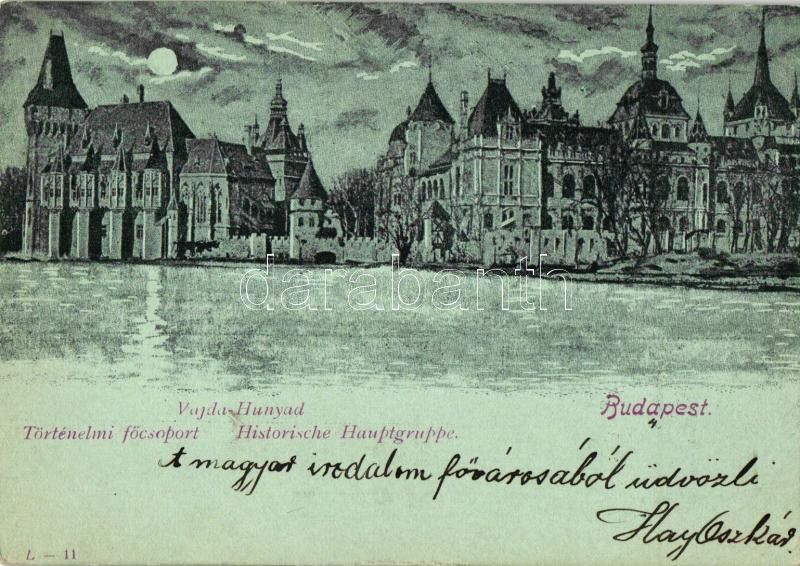 darabanth
Vajda-Hunyad
Budapest.
Történelmi főcsoport Historische Hauptgruppe.
A magyar irodalom fővárosából üdvözli
Hay Oszkár.
L — 11